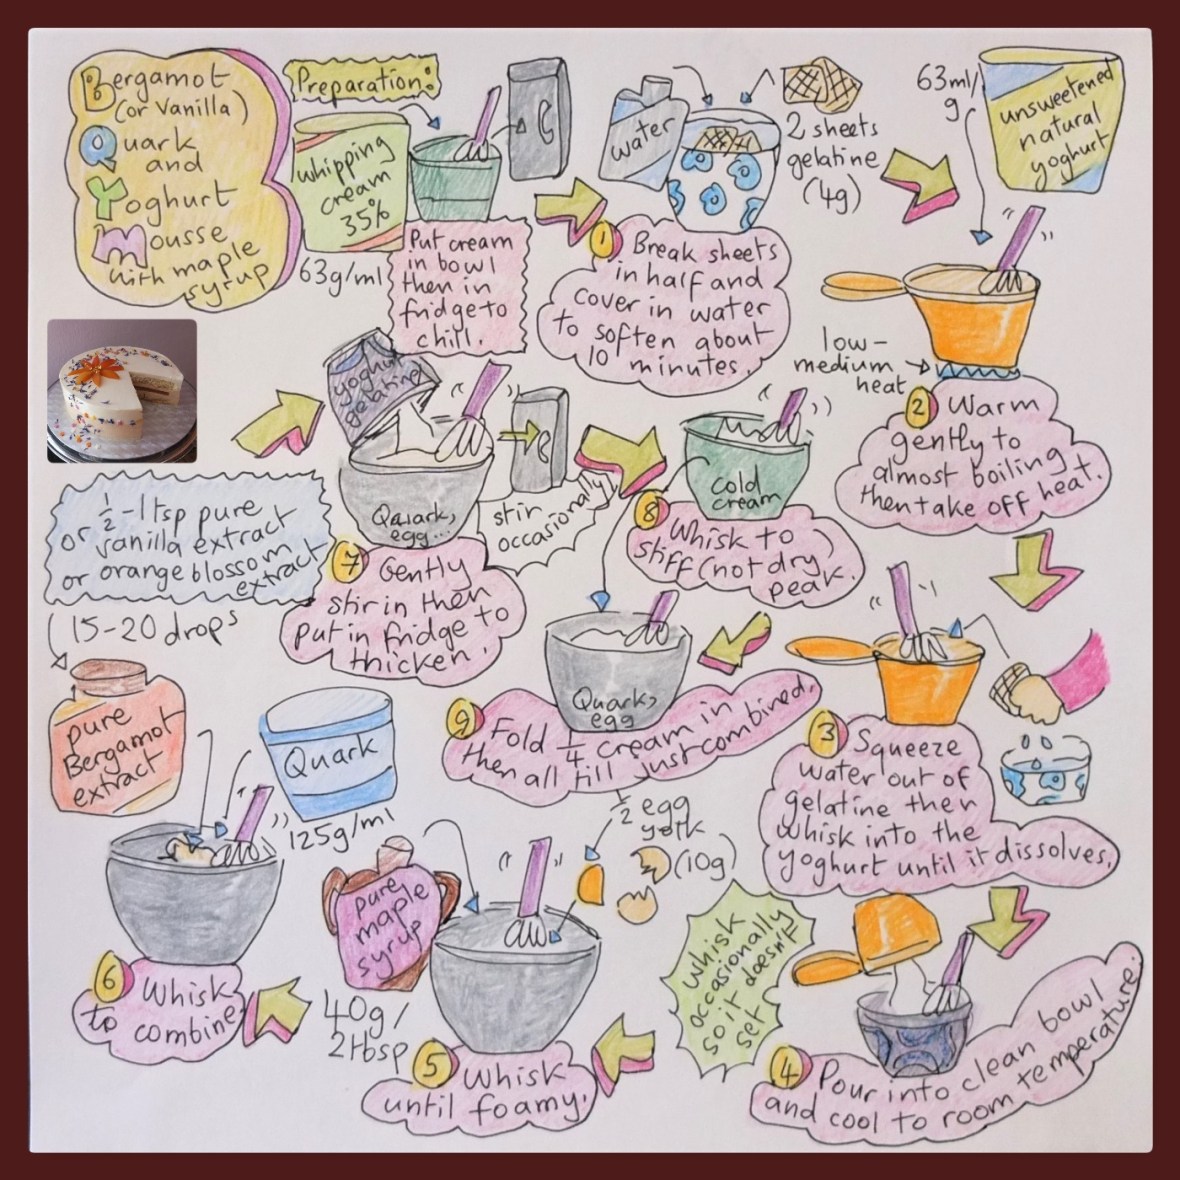 Bergamot
(or vanilla)
Quark
and
Yoghurt
Mousse
with maple
syrup
Preparation:
whipping
cream
35%
63g/ml
Put cream
in bowl
then in
fridge to
chill.
water
2 sheets
gelatine
(4g)
1 Break sheets
in half and
cover in water
to soften about
10 minutes.
63ml/
g
unsweetened
natural
yoghurt
low-
medium
heat
2 Warm
gently to
almost boiling
then take off heat.
3 Squeeze
water out of
gelatine then
whisk into the
yoghurt until it dissolves.
4 Pour into clean bowl
and cool to room temperature.
whisk
occasionally
so it doesn't
set
1/2 egg
yolk
(10g)
pure
maple
syrup
40g/
2tbsp
5 Whisk
until foamy.
1/2-1 tsp pure
or vanilla extract
or orange blossom
extract
15-20 drops
pure
Bergamot
extract
Quark
125g/ml
6 Whisk
to combine
yoghurt
gelatine
Quark,
egg...
stir
occasionally
7 Gently
stir in then
put in fridge to
thicken.
cold
cream
8 Whisk to
stiff (not dry)
peak.
Quark,
egg
9 Fold 1/4 cream in
then all till just combined.